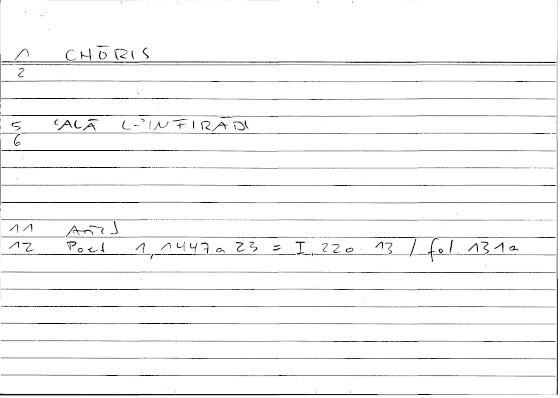 1 CHŌRIS
2
5 ʿALĀ L-ʾINFIRĀDI
6
11 Arist
12 Poet 1, 1447a 23 = I, 220 13 / fol 131a